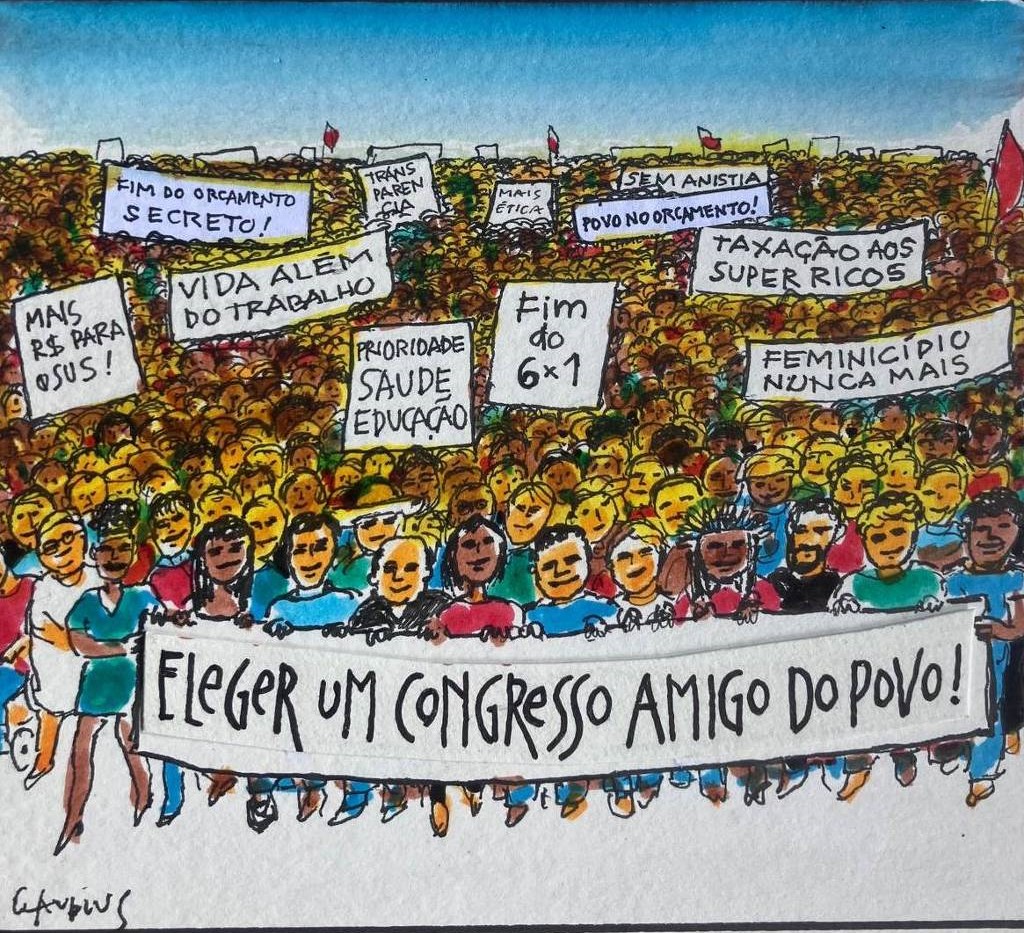 FIM DO ORÇAMENTO
SECRETO!
TRANS
PAREN
CIA
MAIS
ÉTICA
SEM ANISTIA
POVO NO ORÇAMENTO!
TAXAÇÃO AOS
SUPER RICOS
VIDA ALÉM
DO TRABALHO
MAIS
R$ PARA
O SUS!
PRIORIDADE
SAUDE
EDUCAÇÃO
Fim
do
6x1
FEMINICÍDIO
NUNCA MAIS
ELEGER UM CONGRESSO AMIGO DO POVO!
CLAUDIUS